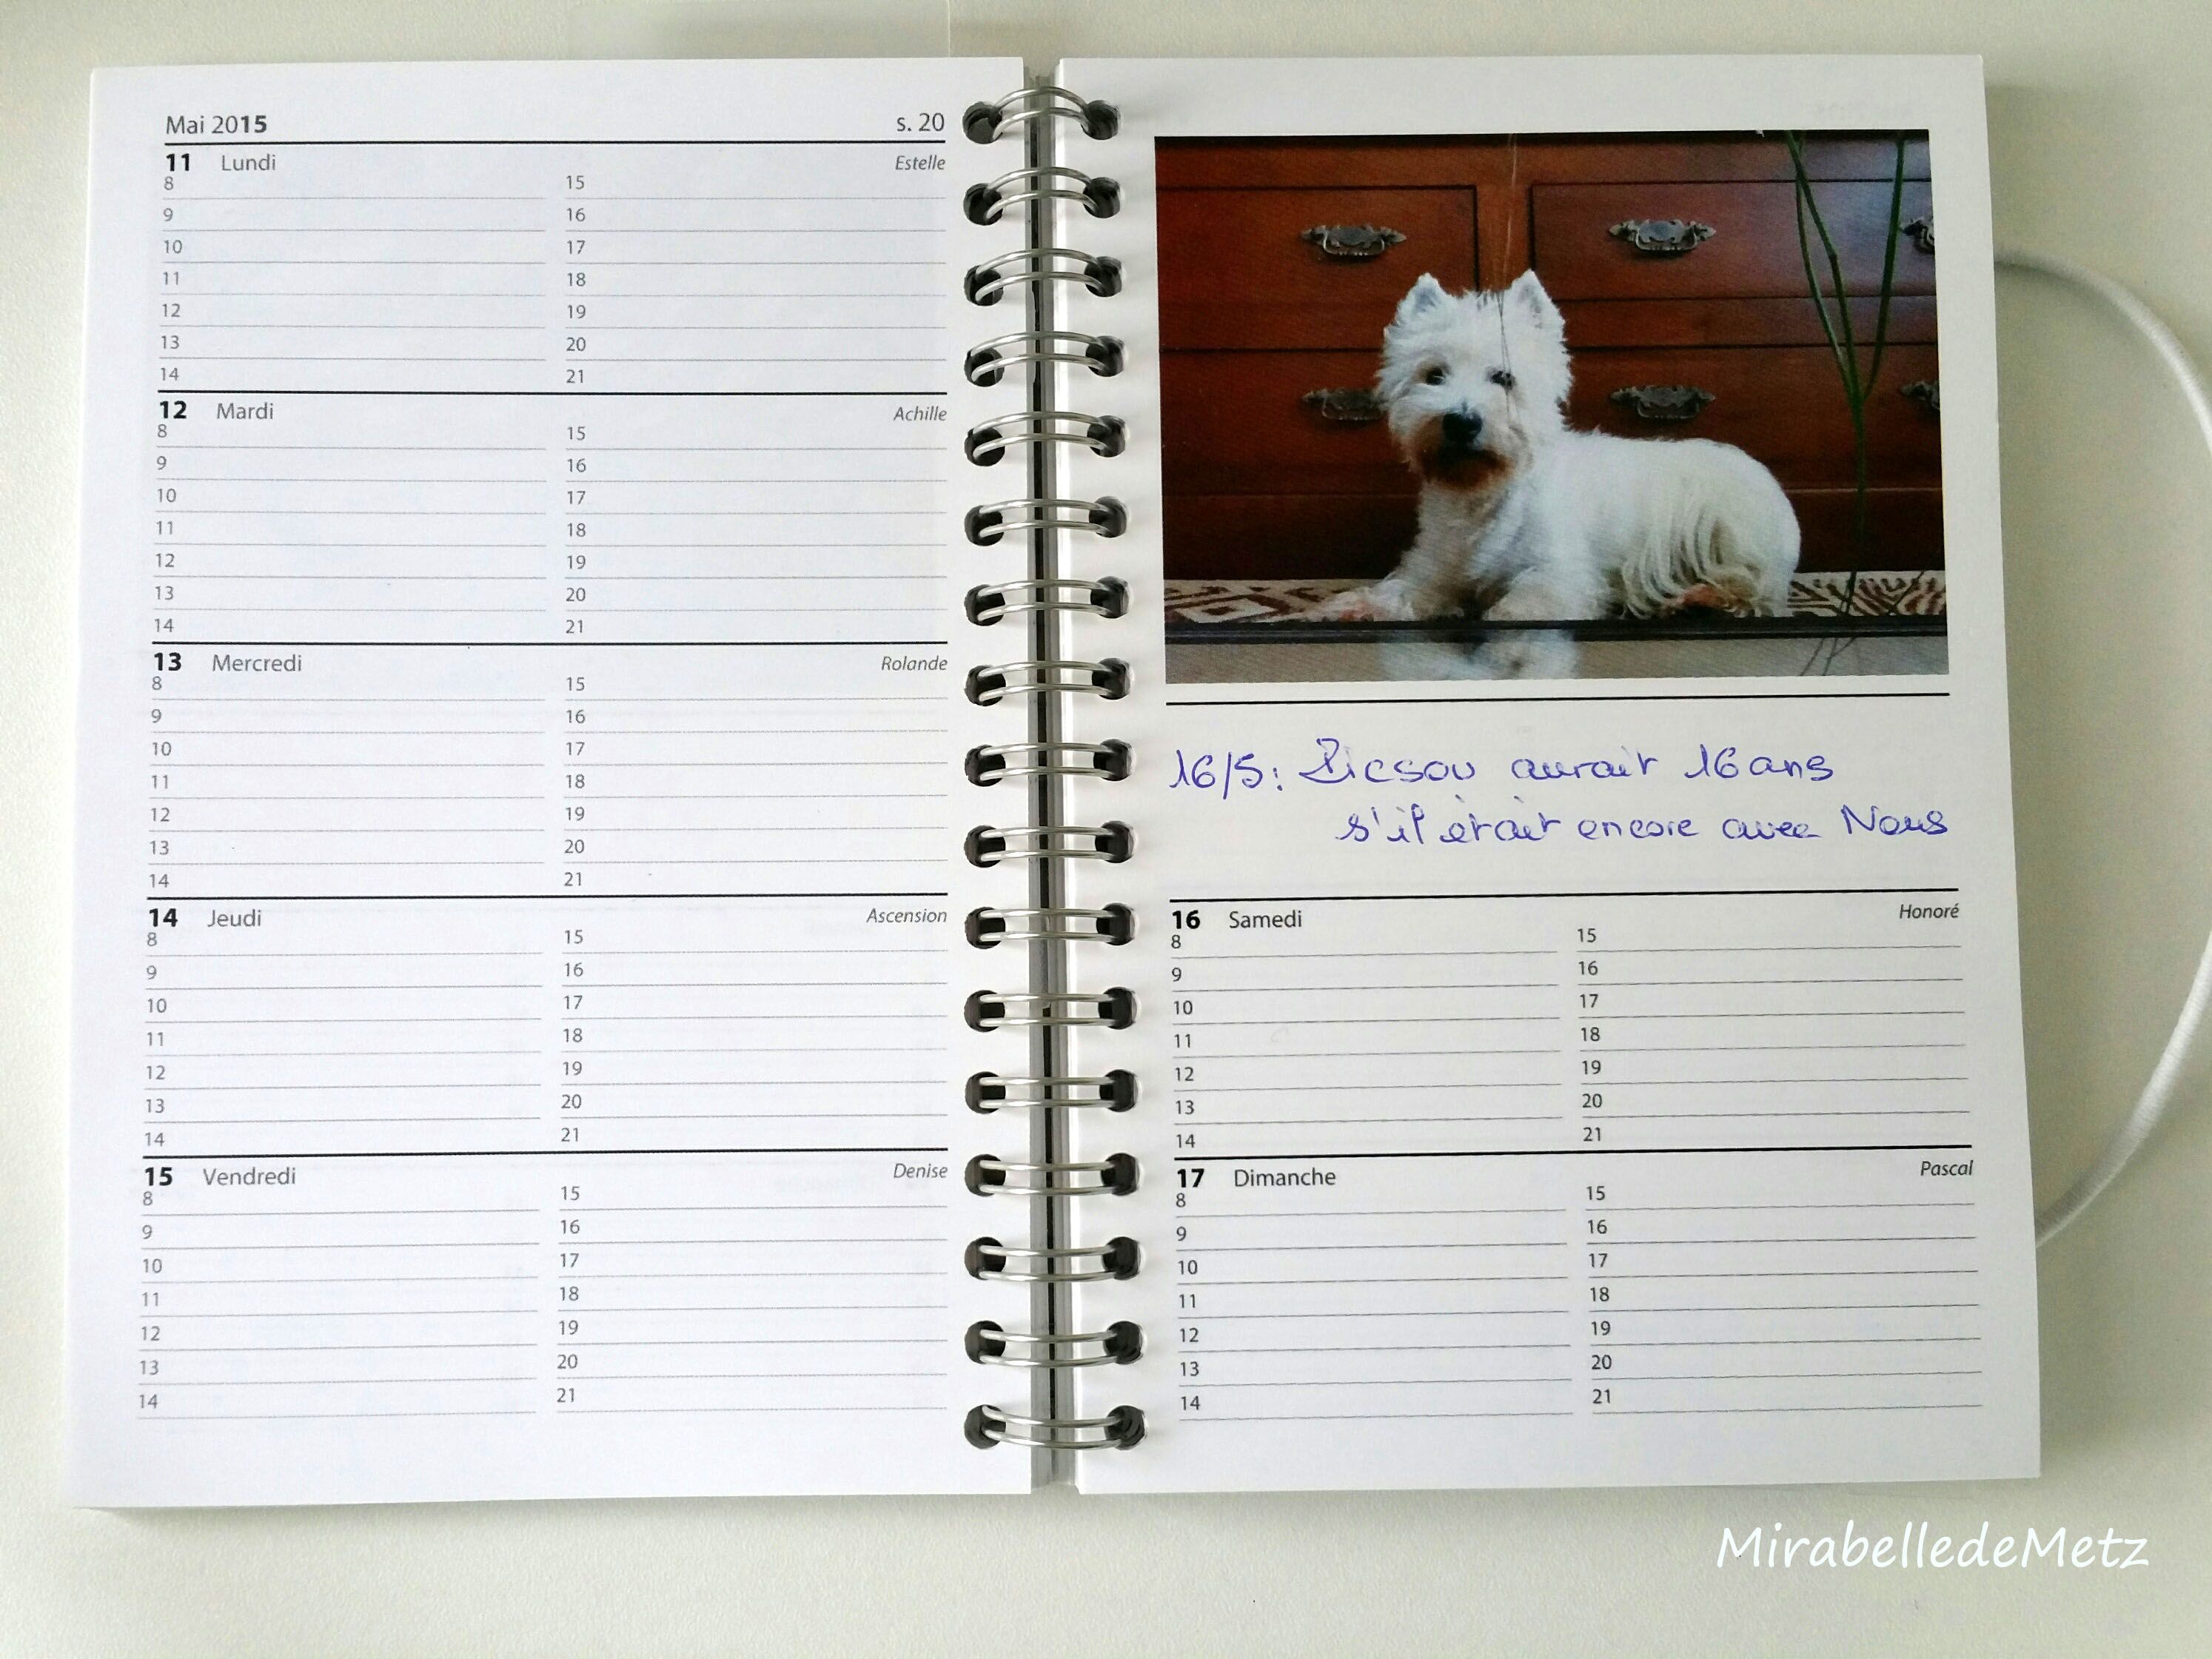 Mai 2015 s. 20
11 Lundi Estelle
8 15
9 16
10 17
11 18
12 19
13 20
14 21
12 Mardi Achille
8 15
9 16
10 17
11 18
12 19
13 20
14 21
13 Mercredi Rolande
8 15
9 16
10 17
11 18
12 19
13 20
14 21
14 Jeudi Ascension
8 15
9 16
10 17
11 18
12 19
13 20
14 21
15 Vendredi Denise
8 15
9 16
10 17
11 18
12 19
13 20
14 21
16/5: Picsou aurait 16 ans
s'il était encore avec Nous
16 Samedi Honoré
8 15
9 16
10 17
11 18
12 19
13 20
14 21
17 Dimanche Pascal
8 15
9 16
10 17
11 18
12 19
13 20
14 21
MirabelledeMetz